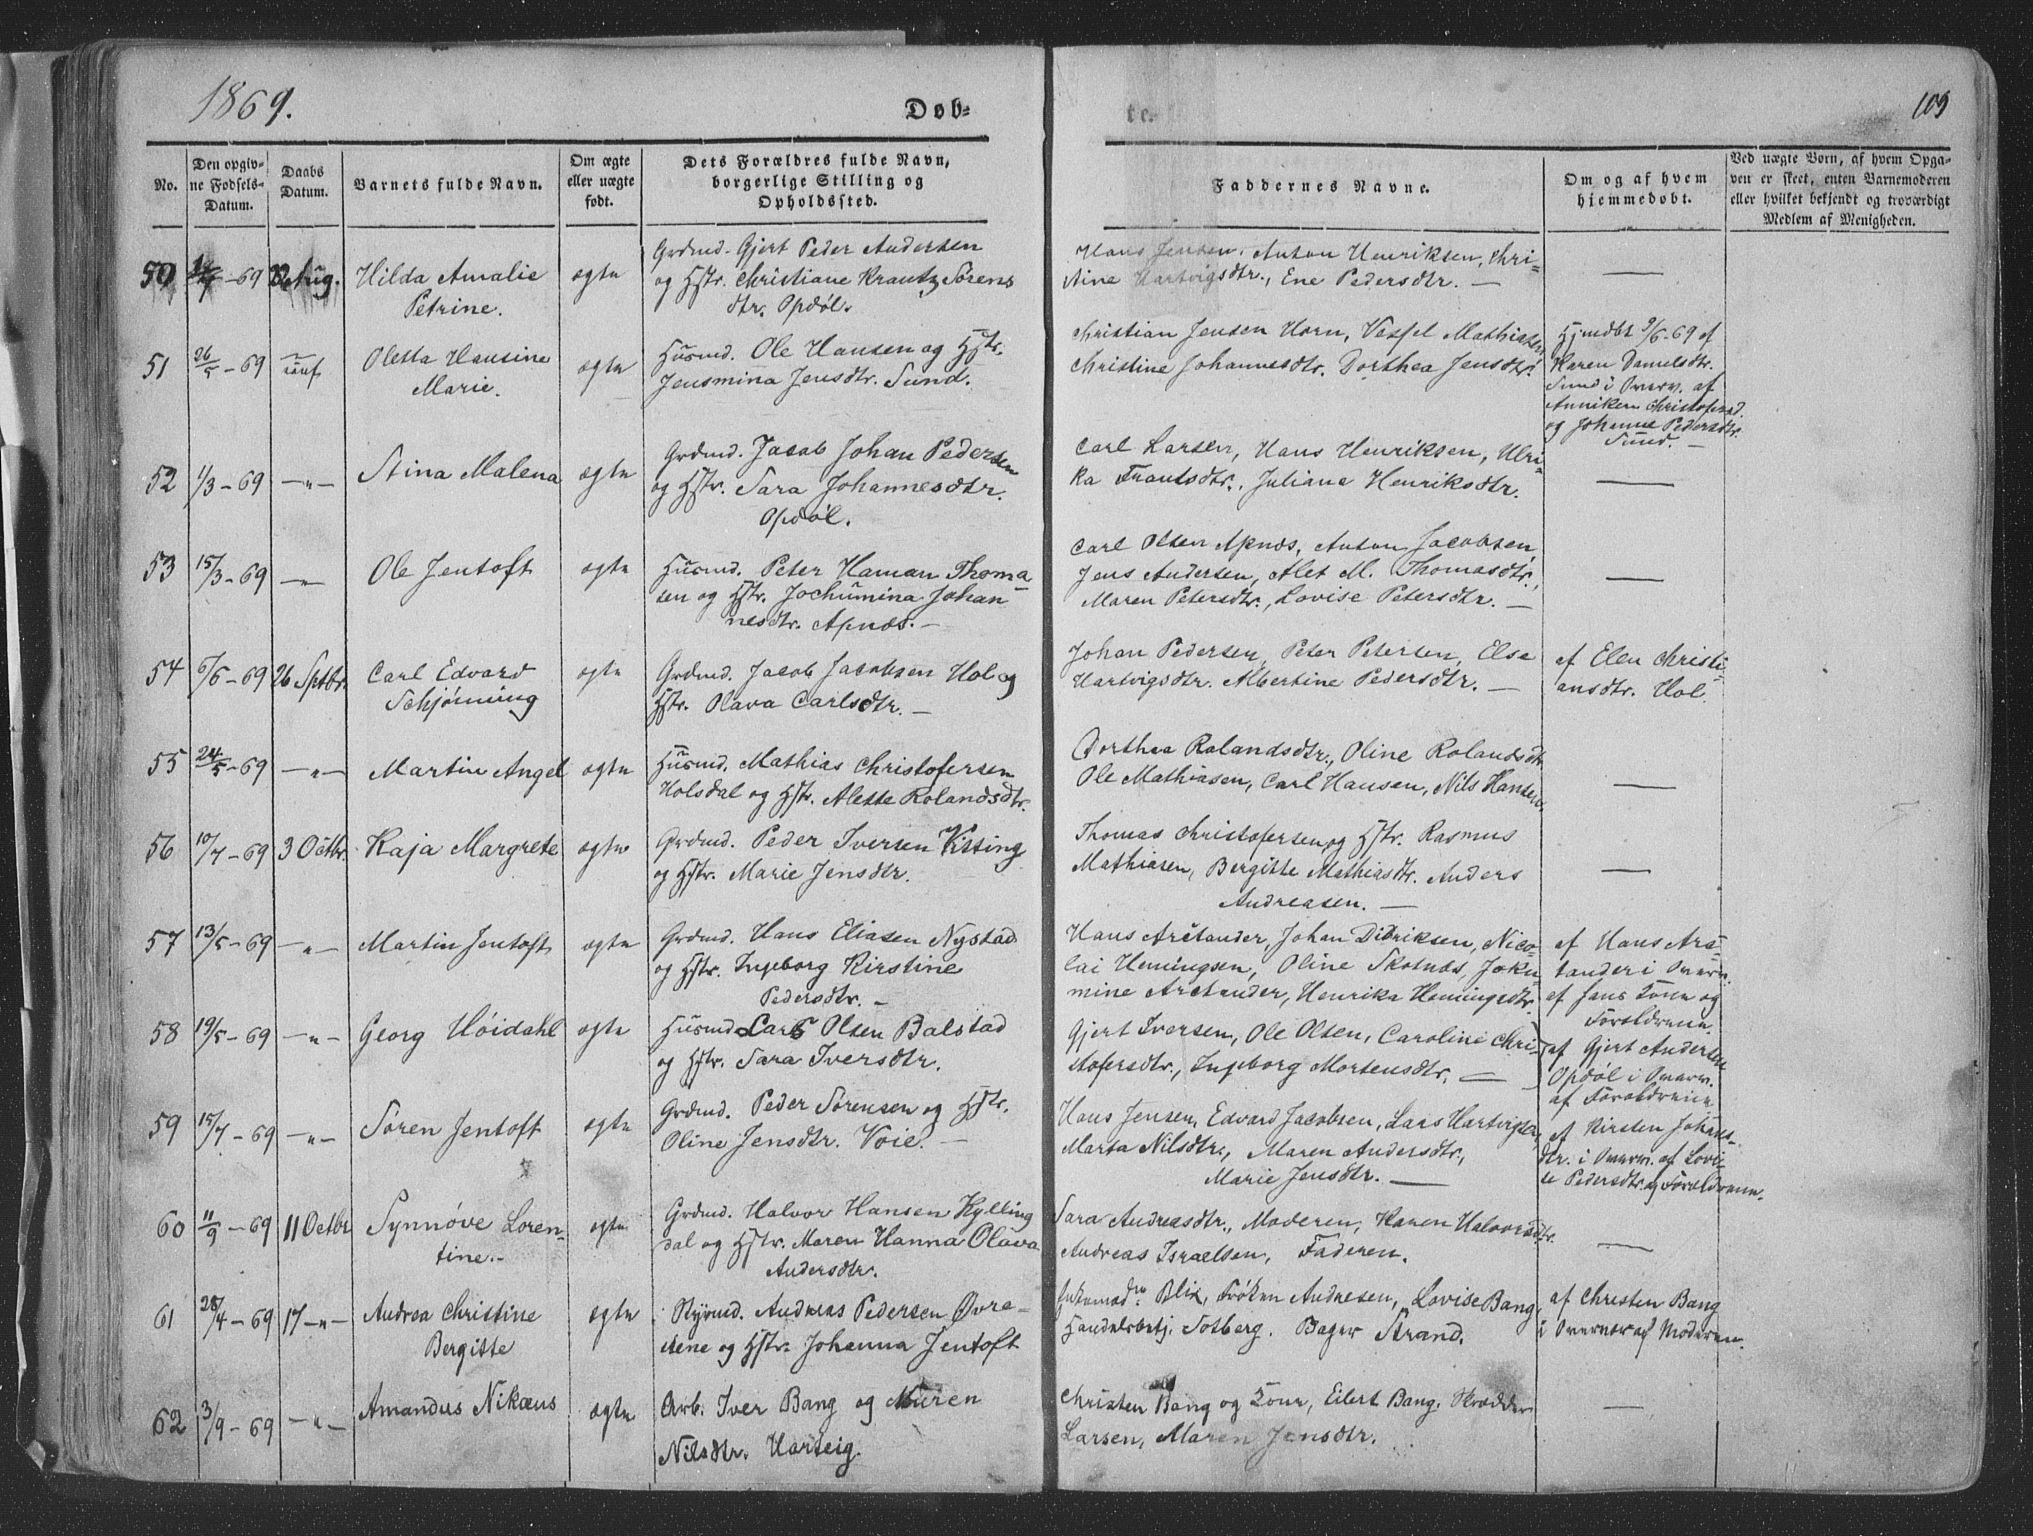 1869.
Døb-
te.
109
No.
Den opgiv-
ne Fødsels-
Datum.
Daabs
Datum.
Barnets fulde Navn.
Om ægte
eller uægte
født.
Dets Forældres fulde Navn,
borgerlige Stilling og
Opholdssted.
Faddernes Navne.
Om og af hvem
hjemmedøbt.
Ved uægte Børn, af hvem Opga-
ven er skeet, enten Barnemoderen
eller hvilket bekjendt og troværdigt
Medlem af Menigheden.
50 -69 Aug. Hilda Amalie
Petrine.
ægte
Grdmd. Gjert Peder Andersen
og Hstr. Christiane Krantz Sørens
dtr. Opdøl.
Hans Jensen, Anton Henriksen, Chri-
stine Hartvigsdtr., Ene Pedersdtr. —
—
51 26/5-69 Oletta Hansine
Marie.
ægte
Husmd. Ole Hansen og Hstr.
Jensmina Jensdtr. Sund.
Christian Jensen Horn, Vessel Mathiasen
Christine Johannesdtr. Dorthea Jensdtr.
Hjmdbt 9/6-69 af
Karen Danielsdtr.
Sund i Overv. af
Anniken Christofersd.
og Johanne Pedersdtr.
Sund. —
52 1/3-69 —"— Stina Malena
ægte
Grdmd. Jacob Johan Pedersen
og Hstr. Sara Johannesdtr.
Opdøl.
Carl Larsen, Hans Henriksen, Ulri-
ka Frantsdtr., Juliane Henriksdtr.
—
53 15/3-69 —"— Ole Jentoft
ægte
Husmd. Peter Haman Thoma
sen og Hstr. Jochumina Johan
nesdtr. Apnæs. —
Carl Olsen Apnæs, Anton Jacobsen,
Jens Andersen, Alet M. Thomasdtr.,
Maren Petersdtr., Lovise Petersdtr. —
—
54 6/6-69 26 Sptbr. Carl Edvard
Schjønning
ægte
Grdmd. Jacob Jacobsen Hol og
Hstr. Olava Carlsdtr. —
Johan Pedersen, Peter Petersen, Else
Hartvigsdtr. Albertine Pedersdtr. —
af Elen Christi-
ansdtr. Hol
55 24/5-69 —"— Martin Angel
ægte
Husmd. Mathias Christofersen
Holsdal og Hstr. Alette Rolandsdtr.
Dorthea Rolandsdtr., Oline Rolandsdtr
Ole Mathiasen, Carl Hansen, Nils Hansen.
—
56 10/7-69 3 Octbr. Kaja Margrete
ægte
Grdmd. Peder Iversen Vitting
og Hstr. Marie Jensdtr.
Thomas Christofersen og Hstr. Rasmus
Mathiasen, Bergitte Mathiasdtr. Anders
Andreasen. —
—
57 13/5-69 —"— Martin Jentoft
ægte
Grdmd. Hans Eliasen Nystad
og Hstr. Ingeborg Kirstine
Pedersdtr. —
Hans Arctander, Johan Didriksen, Nico-
lai Hemingsen, Oline Skotnæs, Joku-
mine Arctander, Henrika Hemingsdtr.
af Hans Arc-
tander i Overv.
af Jans Kone og
Forældrene.
58 19/5-69 —"— Georg Høidahl
ægte
Husmd Carl Olsen Balstad
og Hstr. Sara Iversdtr.
Gjert Iversen, Ole Olsen, Caroline Chri-
stofersdtr., Ingeborg Mortensdtr. —
af Gjert Andersen
Opdøl i Overv.
af Forældrene
59 15/7-69 —"— Søren Jentoft
ægte
Grdmd. Peder Sørensen og Hstr.
Oline Jensdtr. Voie. —
Hans Jensen, Edvard Jacobsen, Lars Hartvigsen,
Marta Nilsdtr., Maren Andersdtr.,
Marie Jensdtr. —
af Kirsten Johans-
dtr. i Overv. af Lovi-
se Pedersdtr og Forældrene.
60 11/9-69 11 Octbr Synnøve Loren-
tine. -
ægte
Grdmd. Halvor Hansen Kylling
dal og Hstr. Maren Hanna Olava
Andersdtr.
Sara Andreasdtr., Moderen, Karen Halvorsdtr.
Andreas Israelsen, Faderen.
—
61 28/4-69 17-"- Andrea Christine
Bergitte
ægte
Styrmd. Andreas Pedersen Øvre-
stene og Hstr. Johanna Jentoft
Blix, Frøken Andresen, Lovise Bang,
Handelsbetj. Solberg. Bager Strand.
af Christen Bang
i Overvær af Moderen.
62 3/9-69 —"— Amandus Nikæus
ægte
Arb. Iver Bang og Maren
Nilsdtr. Harteig.
Christen Bang og Kone, Eilert Bang. Skrædder
Larsen, Maren Jensdtr.
—